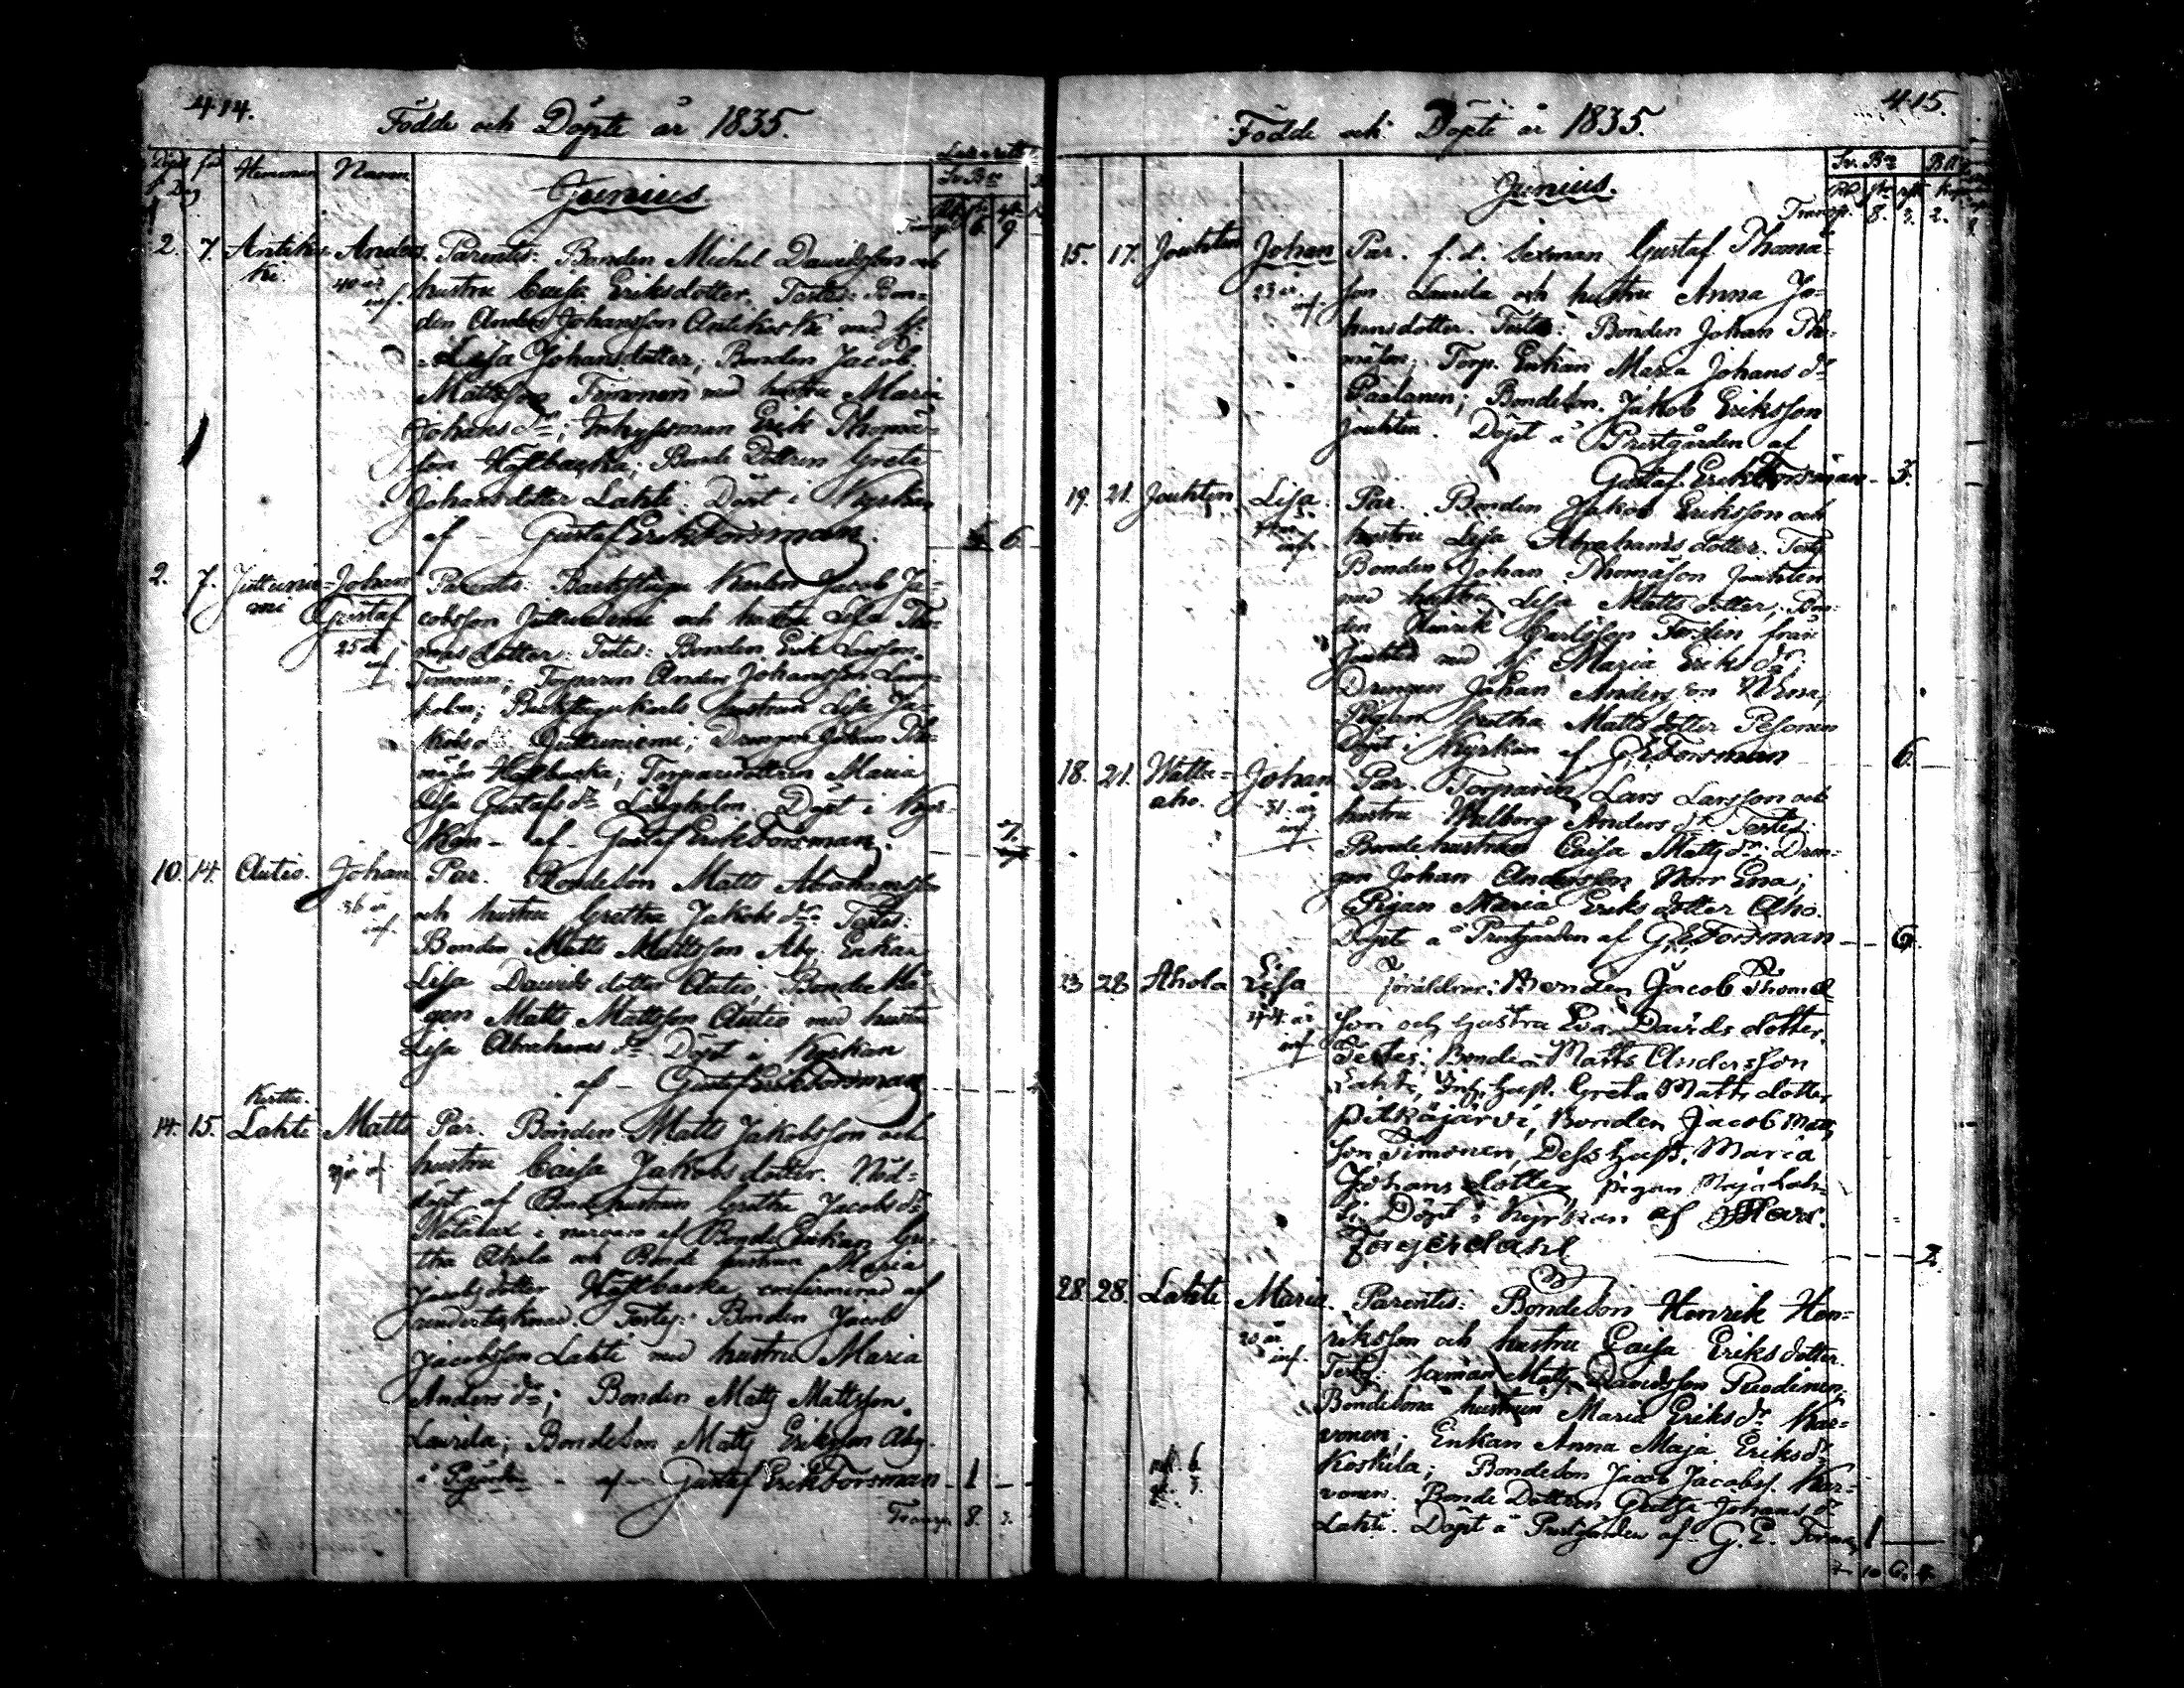 414.
Födde och Döpte år 1835.
Hemman Namn
Junius.
2. 7. Antikos Anders. Parentes: Bonden Michel Davidsson och
ki. 40 år hustru Caisa Eriksdotter. Testes: Bon=
inf. den Anders Johansson Antikoski med h:
Lisa Johansdotter; Bonden Jacob
Mattsson Timonen med hustru Maria
Johans dr; Inhysesman Erik Thomæ=
son Höglbacka; Bonde Dottren Greta
Johansdotter Lahti. Döpt i Kyrkan
af Gustaf Erik Forsman. 6
2. 7. Juttunie= Johan Parentes: Backstugu Karlen Jacob Ja=
mi Gustaf cobsson Juttuniemi och hustru Lisa Tho=
25 år mas dotter. Testes: Bonden Erik Larsson
inf. Timonen; Torparen Anders Johansson Lång=
holm; Backstugukarls hustrun Lisa Ja=
kobs d. Juttuniemi; Drengen Johan Tho=
mæson Höglbacka; Torparedottren Maria
Lisa Gustafs dr Långholm. Döpt i Kyr=
kan - af - Gustaf Erik Forsman. 7.
10. 14. Autio. Johan Par. Bondeson Matts Abrahamsson
36 år och hustru Gretha Jakobs dr. Testes:
inf. Bonden Matts Mattsson Aby, Enkan
Lisa Davids dotter Autio; Bonde
Matts Mattsson Autio med hustru
Lisa Abrahams dr. Döpt i Kyrkan
af - Gustaf Erik Forsman
14. 15. Lahti Matts Par. Bonden Matts Jakobsson och
hustru Caisa Jakobs dotter. Nöd=
döpt af Bondehustrun Gretha Jacobs dr
i närvaro af Bonde Enkan Gre=
tha Ahola och Bonde hustrun Maria
Jacobsdotter Höglbacka, confirmerad af
undertecknad. Testes: Bonden Jacob
Jacobsson Lahti med hustru Maria
Anders dr; Bonden Matts Mattsson
Laurila; Bondeson Matts Eriksson Aby.
af - Gustaf Erik Forsman 1
Transp. 8. 3.
415.
Födde och Döpte år 1835.
Junius.
Transp. 8. 3. 2.
15. 17. Jouhten Johan Par. f.d. Sexman Gustaf Thomæ=
23 år. son Laurila och hustru Anna Jo=
inf. hansdotter. Testes: Bonden Johan Tho=
mæson; Torp. Enkan Maria Johans dr
Paalanen; Bondeson. Jakob Eriksson
Jouhten. Döpt å Prestgården af
Gustaf Erik Forsman 3.
19. 21. Jouhten Lisa Par. Bonden Jakob Eriksson och
inf. hustru Lisa Abrahams dotter. Test.
Bonden Johan Thomæson Jouhten
med hustru Lisa Matts dotter; Bon=
den Henrik Carlsson Forslin från
Jouhten med h. Maria Eriks dr;
Drengen Johan Andersson N. Ena;
Pigan Gretha Matts dotter Pesonen
Döpt i Kyrkan af G E Forsman 6.
18. 21. Watta= Johan Par. Torparen Lars Larsson och
aho. 31. år hustru Walborg Anders dr. Testes:
inf. Bondehustrun Caisa Matts dr. Dren=
gen Johan Andersson Norr Ena;
Pigan Maria Eriks dotter Aho.
Döpt å Prestgården af G.E. Forsman 6.
23 28 Ahola Lisa Föräldrar: Bonden Jacob Thomæ
44 år son och hustru Eva Davids dotter.
inf Testes: Bonden Matts Andersson
Lahti, Inh. hust. Greta Matts dotter
Pitkäjärvi, Bonden Jacob Matts
son Timonen, Dess hust. Maria
Johans dotter, pigan Maja Lah=
ti. Döpt i Kyrkan af
Fagerdahl 2.
28 28. Lahti Maria. Parentes: Bondeson Henrik Hen=
20 år riksson och hustru Caisa Eriks dotter.
inf. Test. Sexman Matts Davidsson Puodinen;
Bondesons hustrun Maria Eriks dr Kar=
vonen; Enkan Anna Maja Eriks dr
Koskela; Bondeson Jacob Jacobss. Kar=
vonen. Bonde Dottren Johans dr
Lahti. Döpt å Prestgården af G. E. Forsman 1
10 6. 4.